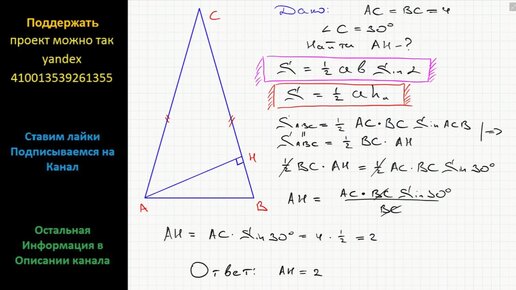 Поддержать
проект можно так
yandex
410013539261355
Ставим лайки
Подписываемся на
Канал
Остальная
Информация в
Описании канала
C
H
A
B
Дано: AC = BC = 4
∠C = 30°
Найти AH - ?
S = ½ ab Sin α
S = ½ a hₐ
S ABC = ½ AC · BC Sin ACB
S ABC = ½ BC · AH
|=>
½ BC · AH = ½ AC · BC Sin 30°
AH = AC · BC Sin 30° / BC
AH = AC · Sin 30° = 4 · ½ = 2
Ответ: AH = 2